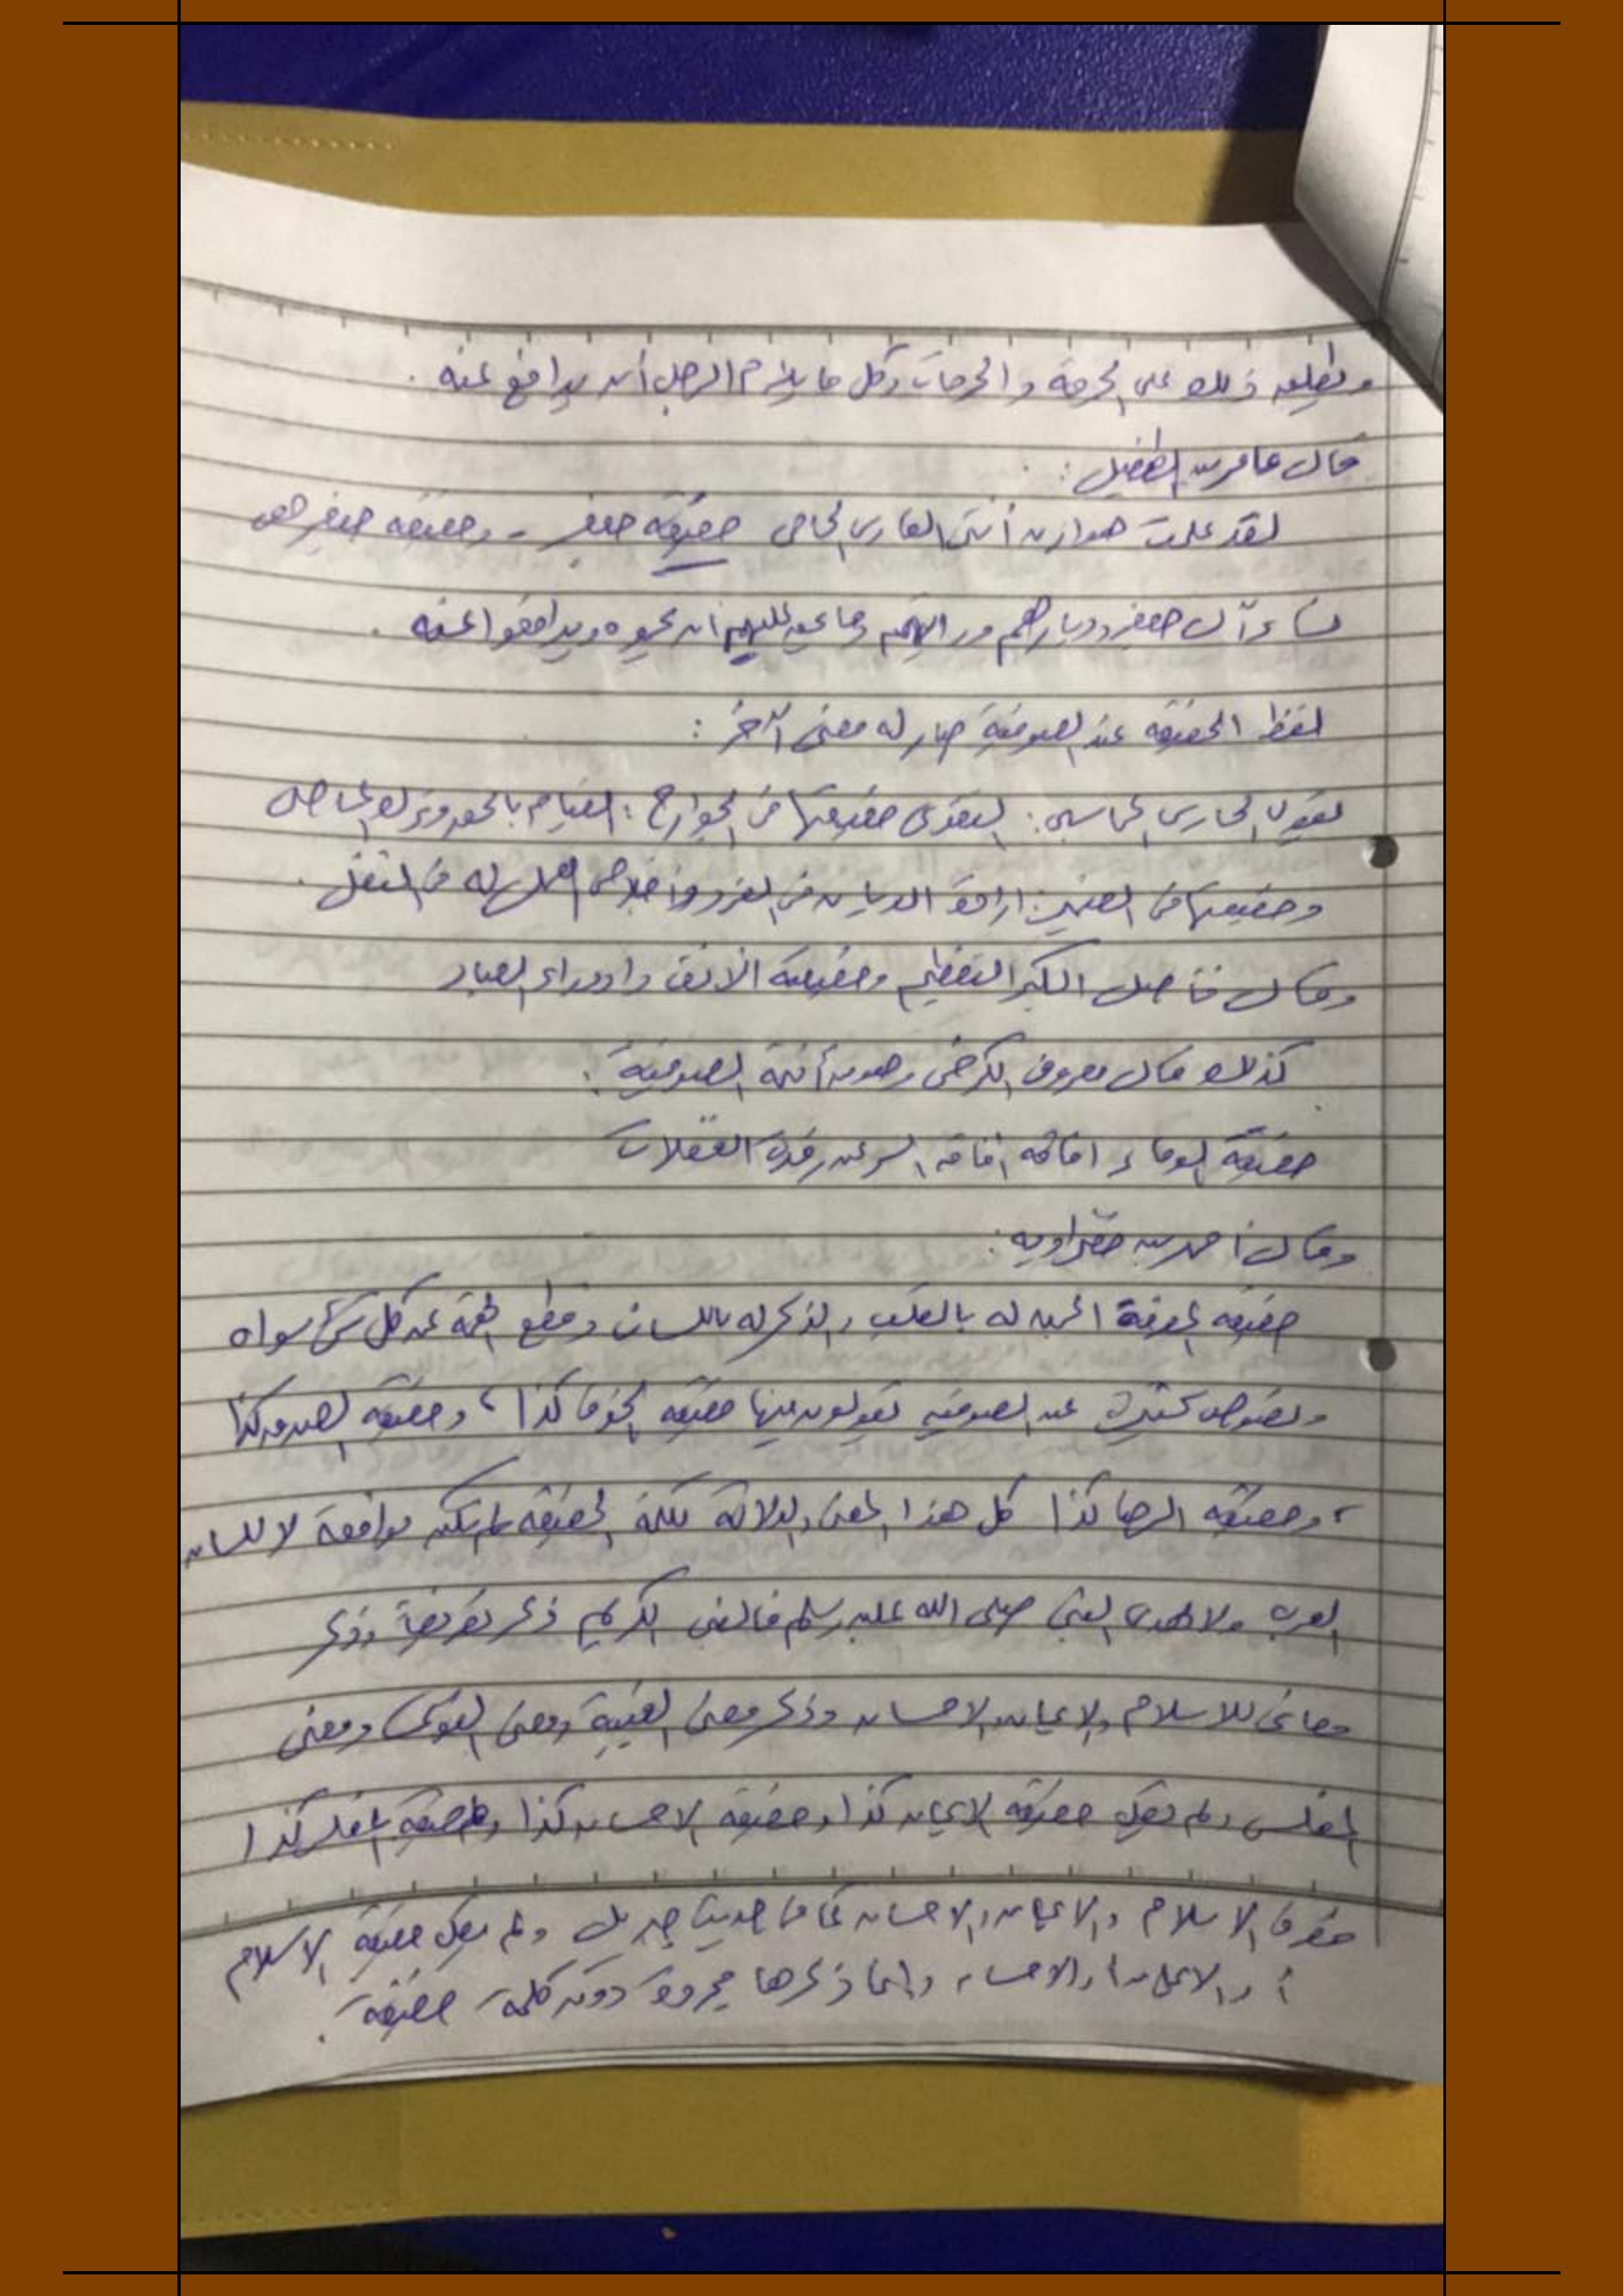 ويطلق ذلك على الحرمة والحرمات وكل ما يلزم الرجل أن يدافع عنه .
قال عامر بن الطفيل :
لقد علمت هوازن أنني الفارس الحامي حقيقة جعفر - وحقيقة جعفر هي
نساء آل جعفر وديارهم و وما عليهم أن يحموه ويدافعوا عنه .
لفظ الحقيقة عند الصوفية صار له معنى آخر :
يقول الحارث المحاسبي : التقوى حقيقتها في الجوارح : القيام بالحق وترك المعاصي
وحقيقتها في الضمير : إرادة الديان في الفرض وإخلاص العمل له في النفل .
وقال فأصل الكبر التعظيم وحقيقته الأنفة وازدراء العباد
كذلك قال معروف الكرخي وهو من أئمة الصوفية :
حقيقة الوفاء افاقه افاقه السر عن رقدة الغفلات
وقال أحمد بن خضراويه :
حقيقة المعرفة المحبة له بالقلب والذكر له باللسان وقطع الهمة عن كل شيء سواه
ونصوص كثيرة عند الصوفية يقولون فيها حقيقة الخوف كذا ، وحقيقة الصدق كذا
، وحقيقة الرضا كذا كل هذا المعنى والدلالة لكلمة الحقيقة لم تكن موافقة لا للسان
العرب ولا لهدي النبي صلى الله عليه وسلم فالنبي الكريم ذكر تعريفاً وذكر
معاني للاسلام والايمان والاحسان وذكر معنى الغيبة ومعنى التقوى ومعنى
المفلس ولم يقل حقيقة الايمان كذا وحقيقة الاحسان كذا وحقيقة المفلس كذا
الاسلام والايمان والاحسان كما في حديث جبريل ولم يقل حقيقة الاسلام
أو الايمان أو الاحسان وانما ذكرها مجردة دون كلمة حقيقة .